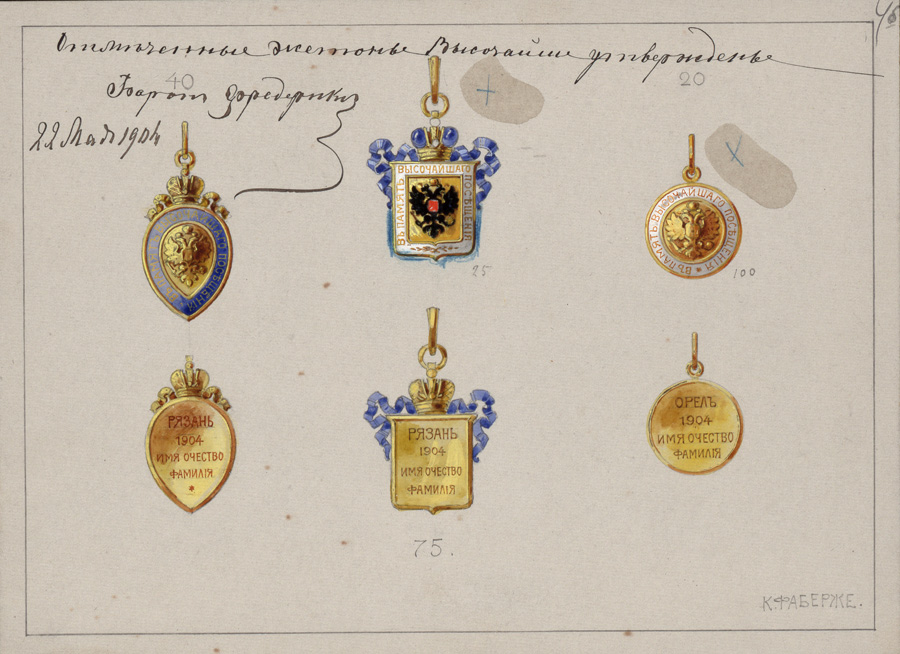 46
Отмѣченные жетоны Высочайше утверждены
40
20
Баронъ Фредериксъ
22 Мая 1904
ВЪ ПАМЯТЬ ВЫСОЧАЙШАГО ПОСѢЩЕНІЯ
ВЪ ПАМЯТЬ ВЫСОЧАЙШАГО ПОСѢЩЕНІЯ
ВЪ ПАМЯТЬ ВЫСОЧАЙШАГО ПОСѢЩЕНІЯ
25
100
РЯЗАНЬ
1904
ИМЯ ОЧЕСТВО
ФАМИЛІЯ
РЯЗАНЬ
1904
ИМЯ ОЧЕСТВО
ФАМИЛІЯ
ОРЕЛЪ
1904
ИМЯ ОЧЕСТВО
ФАМИЛІЯ
75.
К.ФАБЕРЖЕ.